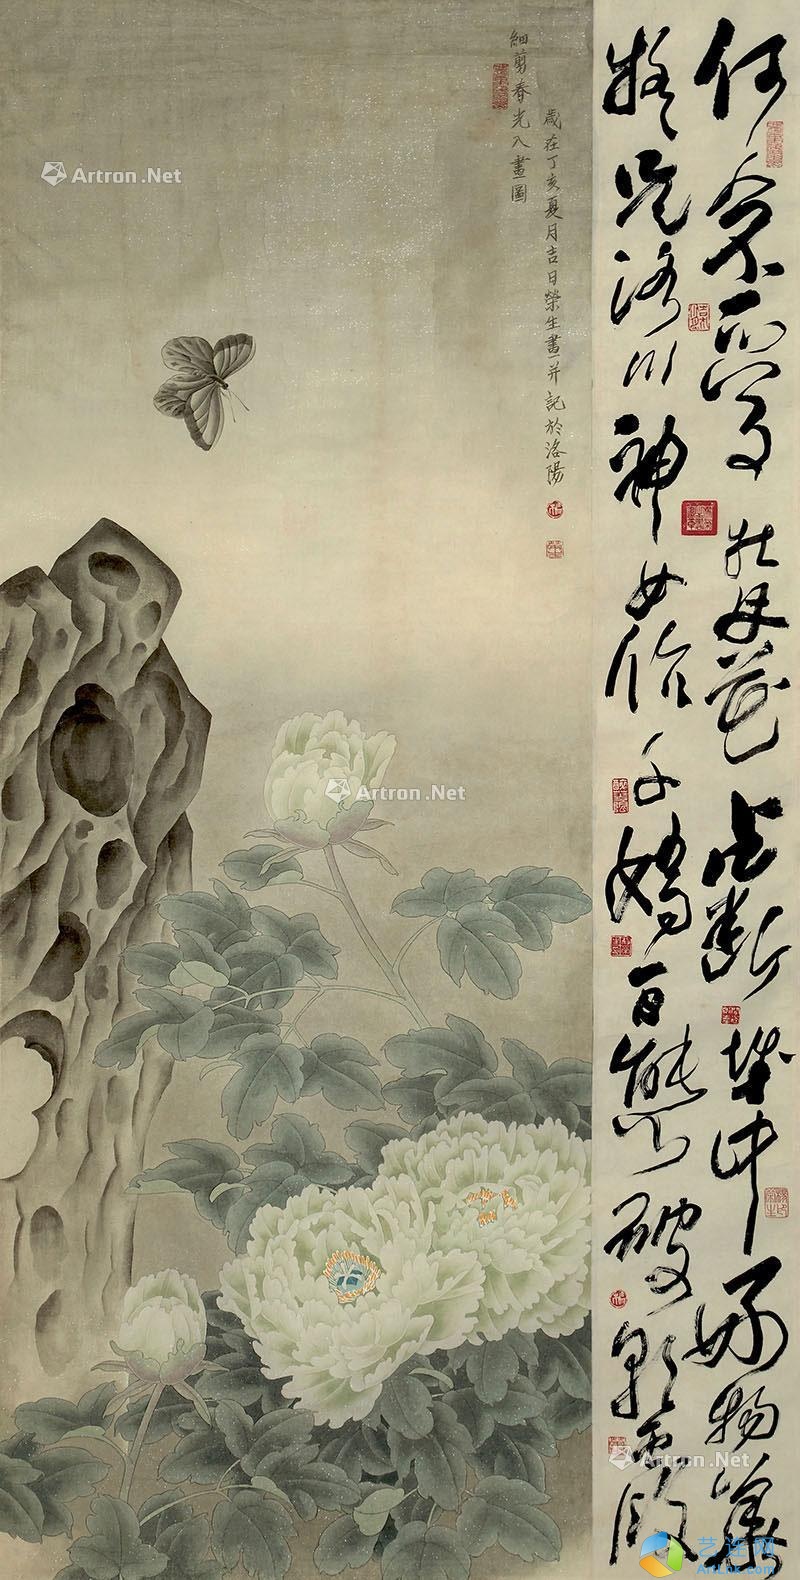 何人不愛牡丹花占斷城中好物華
疑是洛川神女作千嬌百態破朝霞
細剪春光入畫圖
歲在丁亥夏月吉日榮生畫并記於洛陽
Artron.Net
Artron.Net
Artron.Net